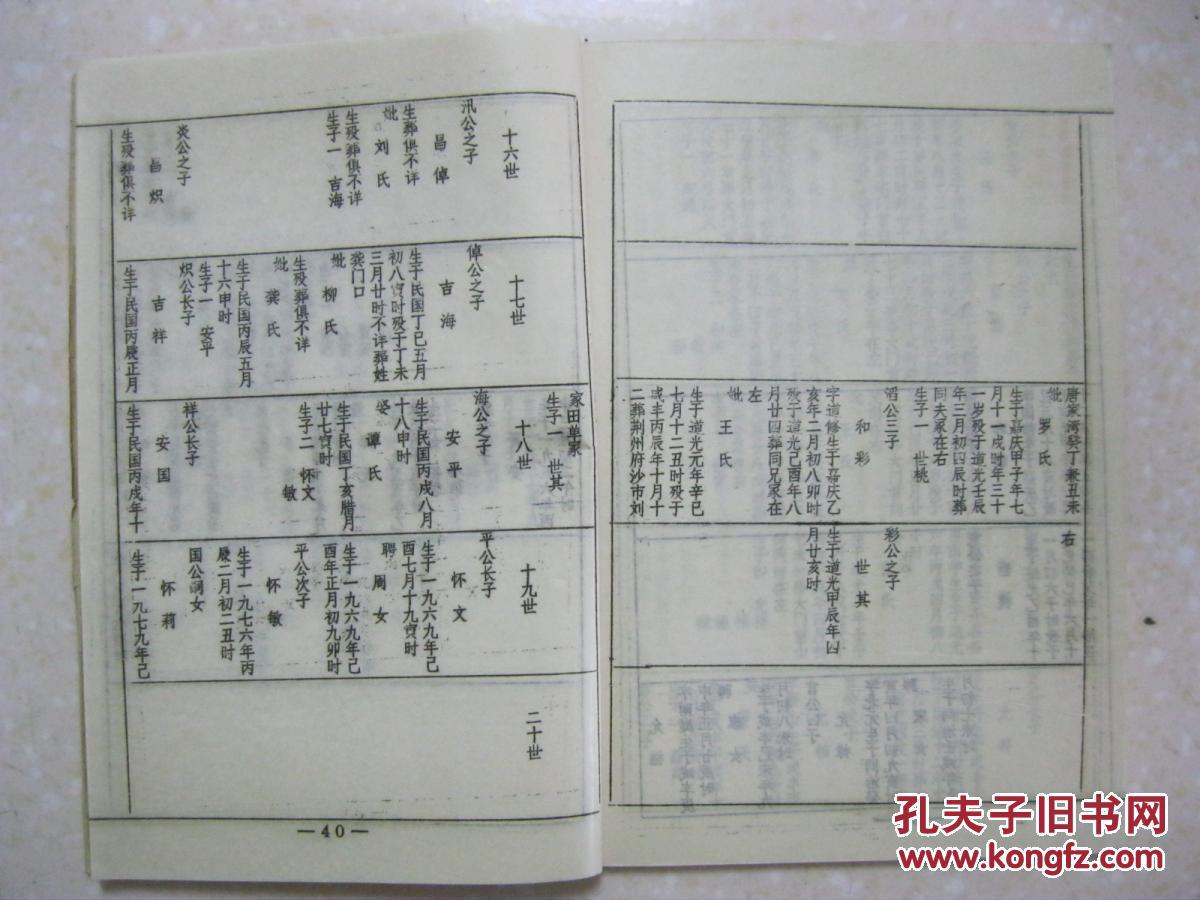 唐家湾癸丁兼丑未
妣 罗 氏
生于嘉庆甲子年七
月十一戌时年三十
一岁殁于道光壬辰
年三月初四辰时葬
同夫冢在右
生子一 世桃
滔公三子
和 彩
字道修生于嘉庆乙
亥年二月初八卯时
殁于道光己酉年八
月廿四葬同兄冢在
左
妣 王 氏
生于道光元年辛巳
七月十二丑时殁于
咸丰丙辰年十月十
二葬荆州府沙市刘
右
彩公之子
世 其
生于道光甲辰年四
月廿亥时
十六世
汛公之子
昌 倬
生葬俱不详
妣 刘 氏
生殁葬俱不详
生子一 吉海
炎公之子
昌 炽
生殁葬俱不详
十七世
倬公之子
吉 海
生于民国丁巳五月
初八寅时殁于丁未
三月廿时不详葬姓
龚门口
妣 柳 氏
生殁葬俱不详
妣 龚 氏
生于民国丙辰五月
十六申时
生子一 安平
炽公长子
吉 祥
生于民国丙辰正月
家田单冢
生子一 世其
十八世
海公之子
安 平
生于民国丙戌八月
十八申时
娶 谭 氏
生于民国丁亥腊月
廿七寅时
生子二 怀文
敏
祥公长子
安 国
生于民国丙戌年十
十九世
平公长子
怀 文
生于一九六九年己
酉七月十九寅时
聘 周 女
生于一九六九年己
酉年正月初九卯时
平公次子
怀 敏
生于一九七六年丙
辰二月初二丑时
国公闺女
怀 莉
生于一九七九年己
二十世
—40—
孔夫子旧书网
www.kongfz.com